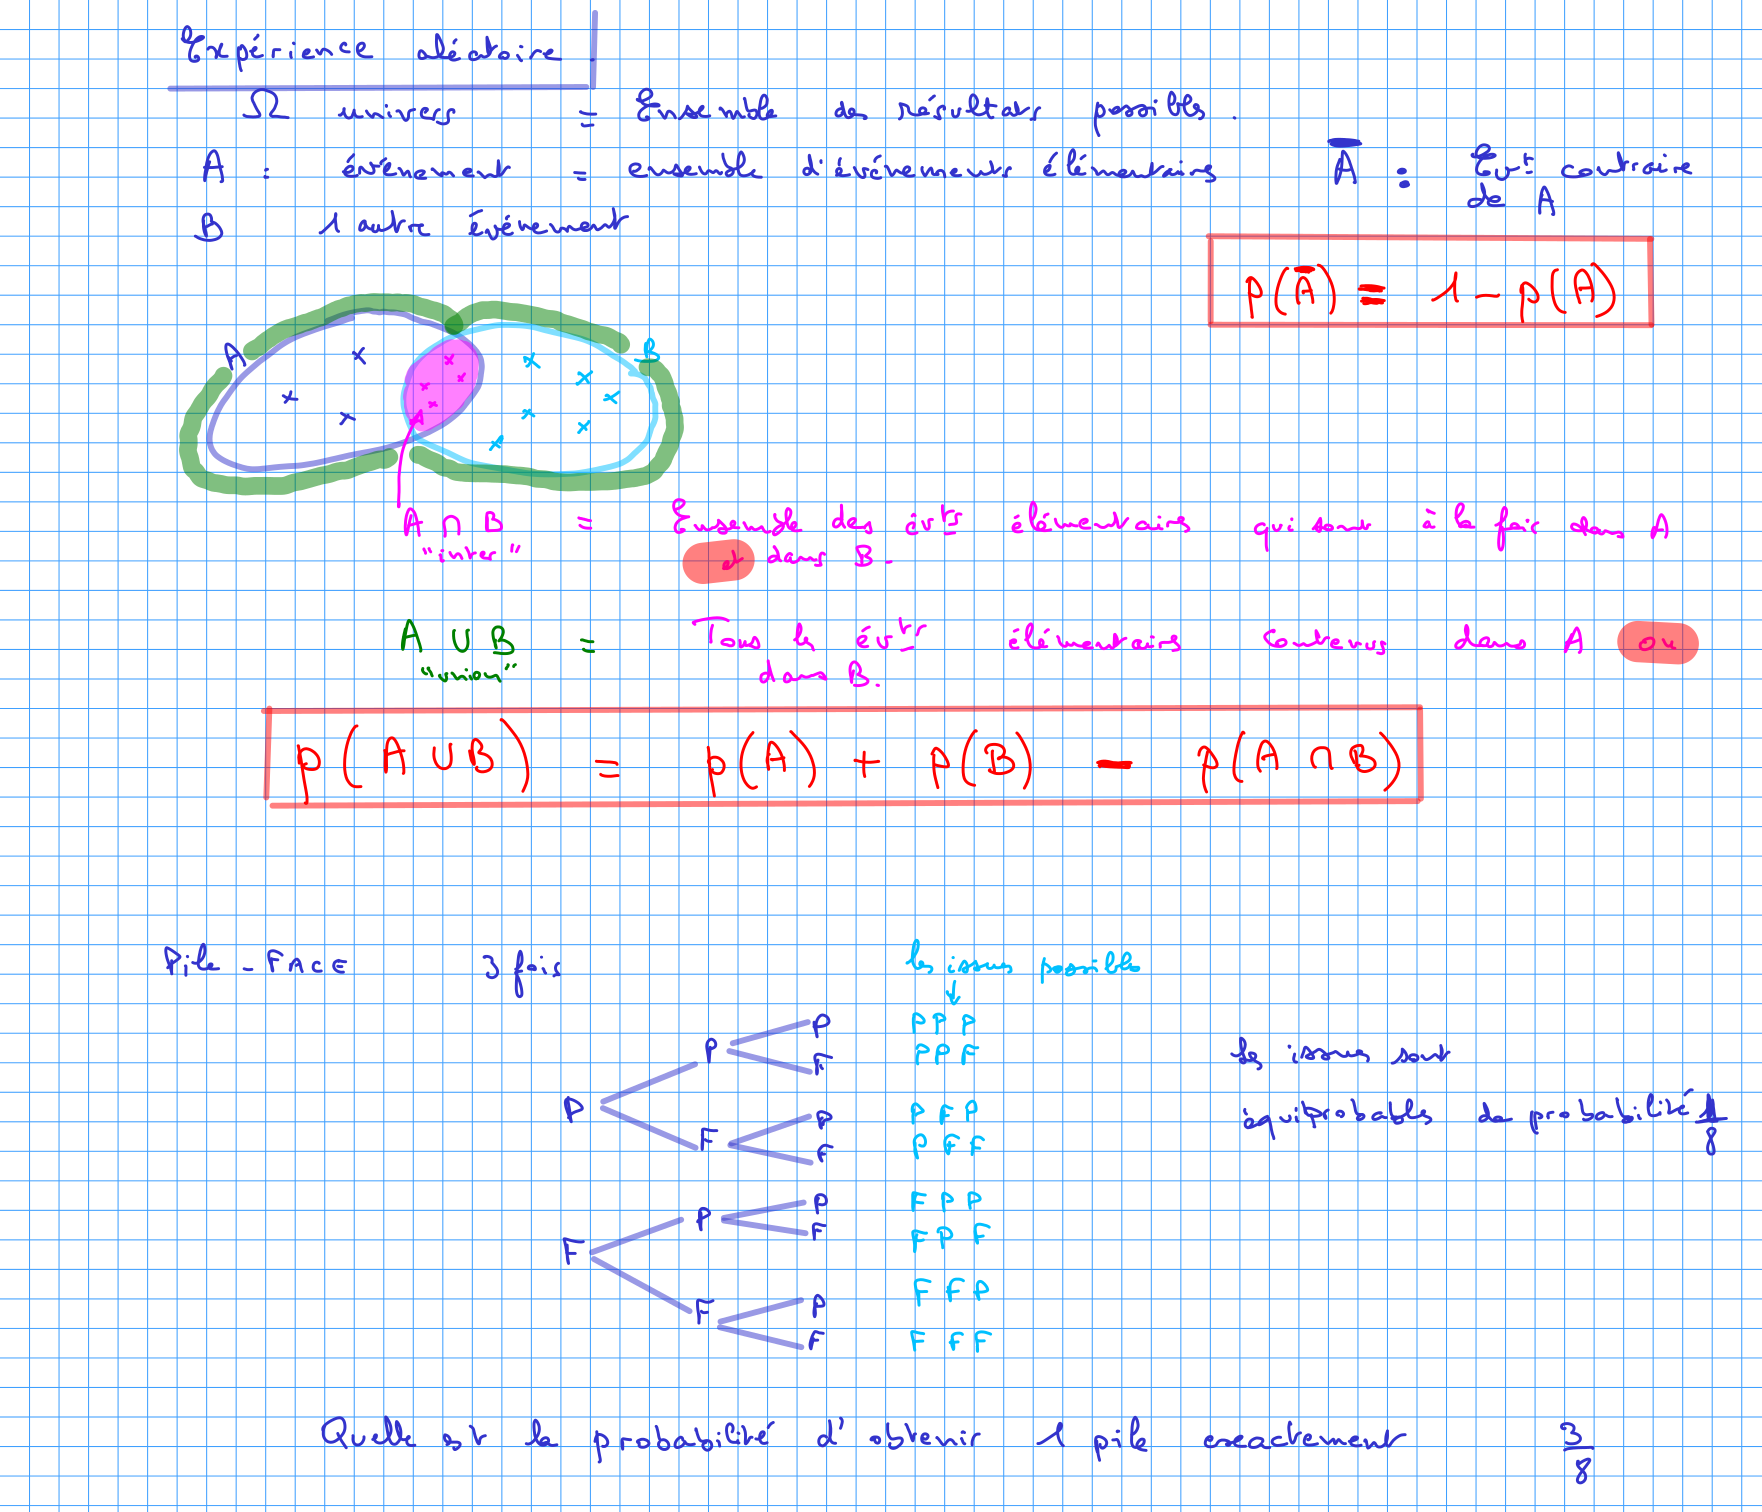 Expérience aléatoire.
Ω univers = Ensemble des résultats possibles.
A : événement = ensemble d'événements élémentaires
B 1 autre événement
A̅ : Evt contraire
de A
p(A̅) = 1 - p(A)
A
B
A ∩ B = Ensemble des évts élémentaires qui sont à la fois dans A
"inter" et dans B.
A ∪ B = Tous les évts élémentaires contenus dans A ou
"union" dans B.
p(A ∪ B) = p(A) + p(B) - p(A ∩ B)
Pile - FACE 3 fois
les issues possibles
↓
P P P P P P
F P P F
F P P F P
F P F F
F P P F P P
F F P F
F P F F P
F F F F
Les issues sont
équiprobables de probabilité 1/8
Quelle est la probabilité d'obtenir 1 pile exactement 3/8